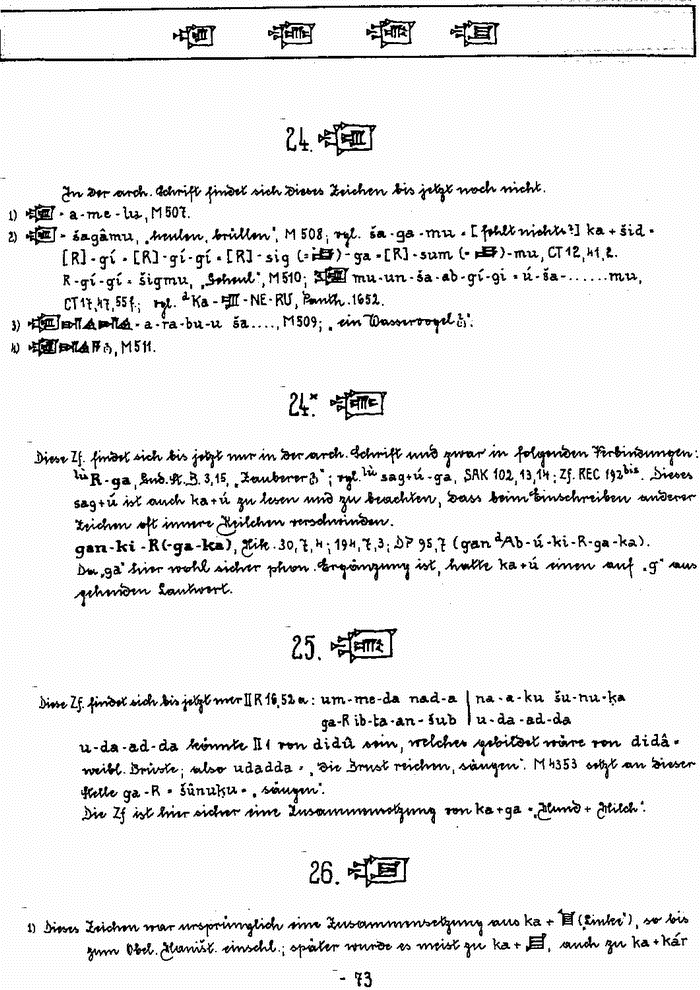 24.
In der arch. Schrift findet sich dieses Zeichen bis jetzt noch nicht.
1) = a-me-lu, M 507.
2) = šagâmu, „heulen, brüllen", M 508; vgl. ša-ga-mu = [fehlt nichts?] ka + šid =
[R]-gí = [R]-gí-gí = [R]-sig (= )-ga = [R]-sum (= )-mu, CT 12, 41, 2.
R-gí-gí = šigmu, M 510; mu-un-ša-ab-gí-gi = ú-ša-......mu,
CT 17, 47, 55 f.; vgl. ᵈKa- -NE-RU, Panth. 1652.
3) = a-ra-bu-u ša...., M 509; „ein Wasservogel
4) , M 511.
24.ˣ
Diese Zf. findet sich bis jetzt nur in der arch. Schrift und zwar in folgenden Verbindungen:
ˡᵘ̀R-ga, Gud. St. B. 3, 15, „Zauberer ; vgl. ˡᵘ̀ sag+ú-ga, SAK 102, 13, 14; Zf. REC 192ᵇⁱˢ. Dieses
sag+ú ist auch ka+ú zu lesen und zu beachten, dass beim Einschreiben anderer
Zeichen oft innere Keilchen verschwinden.
gan-ki-R(-ga-ka), Nik. 30, 7, 4; 194, 7, 3; DP 95, 7 (gan ᵈAb-ú-ki-R-ga-ka).
Da „ga" hier wohl sicher phon. Ergänzung ist, hatte ka+ú einen auf „g" aus
gehenden Lautwert.
25.
Diese Zf. findet sich bis jetzt nur II R 16, 52 a: um-me-da nad-a | na-a-ku šu-nu-ḳa
ga-R ib-ta-an-šub | u-da-ad-da
u-da-ad-da könnte II 1 von didû sein, welches gebildet wäre von didâ =
weibl. Brüste; also udadda = „die Brust reichen, säugen". M 4353 setzt an dieser
Stelle ga-R = šûnuḳu = „säugen".
Die Zf ist hier sicher eine Zusammensetzung von ka+ga = „Mund + Milch".
26.
1) Dieses Zeichen war ursprünglich eine Zusammensetzung aus ka + („Linke"), so bis
zum Obel. Maništ. einschl.; später wurde es meist zu ka + , auch zu ka+kár
- 73